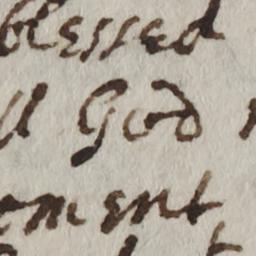 blessed
God
ment